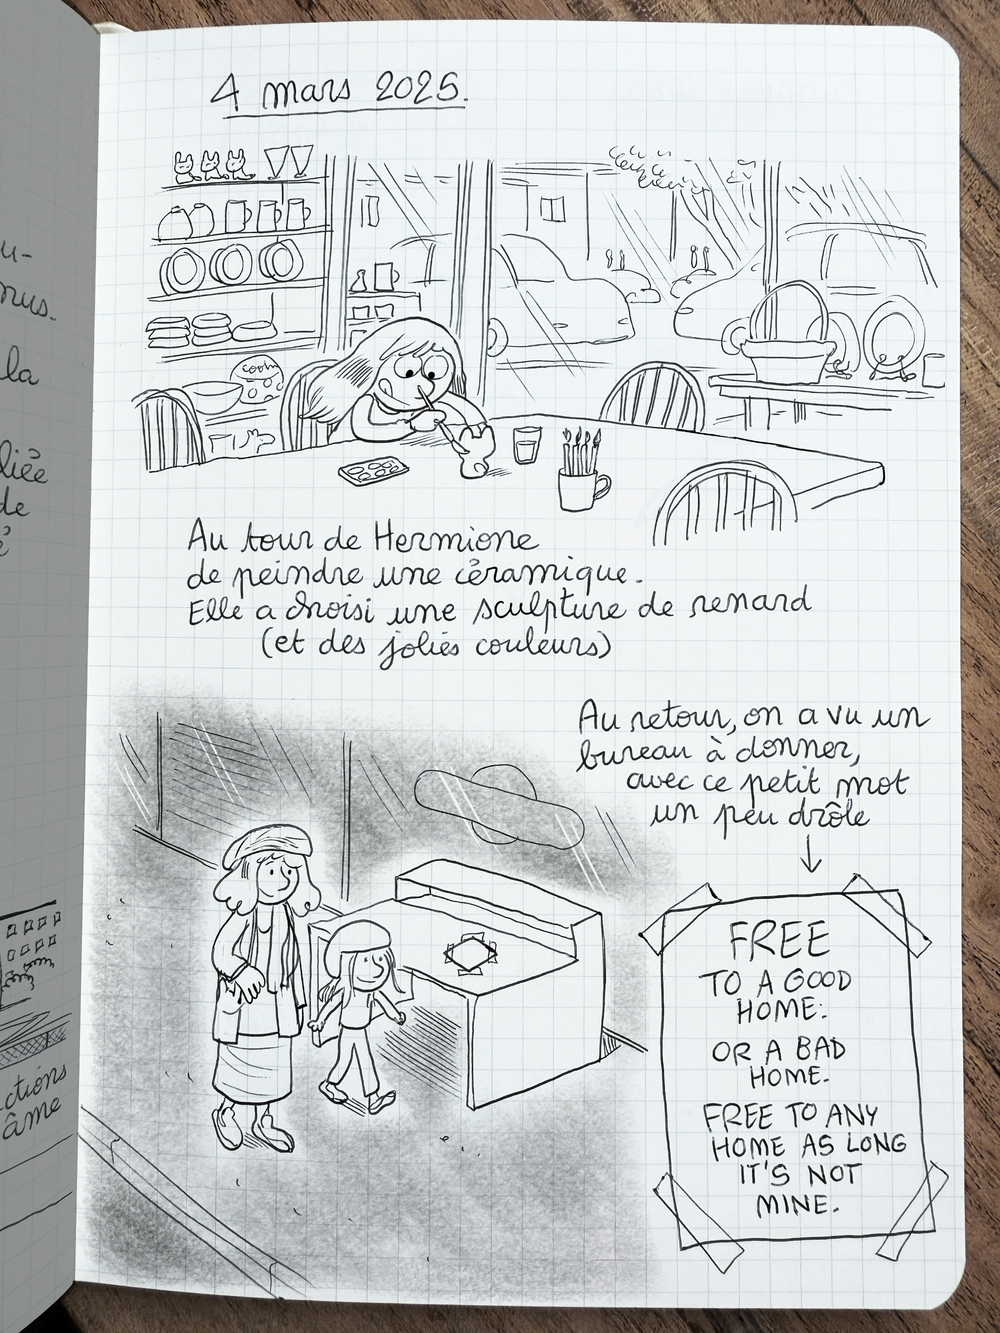 u-
nus.
la
liée
de
é
ctions
âme
4 mars 2025.
cooki
Au tour de Hermione
de peindre une céramique.
Elle a choisi une sculpture de renard
(et des jolies couleurs)
Au retour, on a vu un
bureau à donner,
avec ce petit mot
un peu drôle
FREE
TO A GOOD
HOME.
OR A BAD
HOME.
FREE TO ANY
HOME AS LONG
IT'S NOT
MINE.